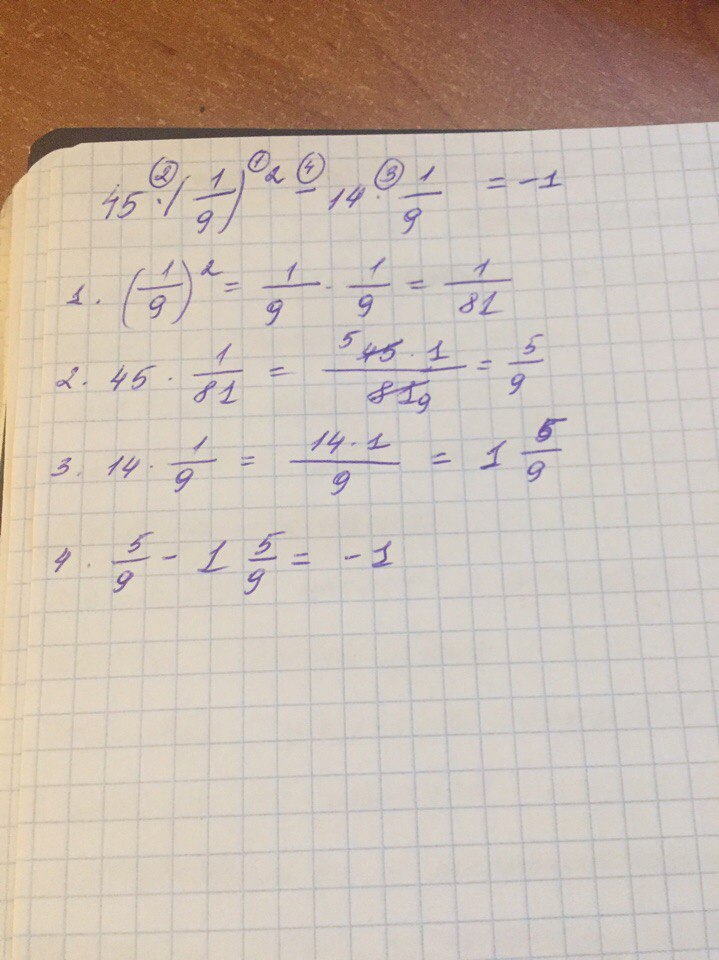 45 ·② (1/9)^2① −④ 14 ·③ 1/9 = -1
1. (1/9)^2 = 1/9 · 1/9 = 1/81
2. 45 · 1/81 = 5 45 · 1 / 81 9 = 5/9
3. 14 · 1/9 = 14 · 1 / 9 = 1 5/9
4. 5/9 - 1 5/9 = -1